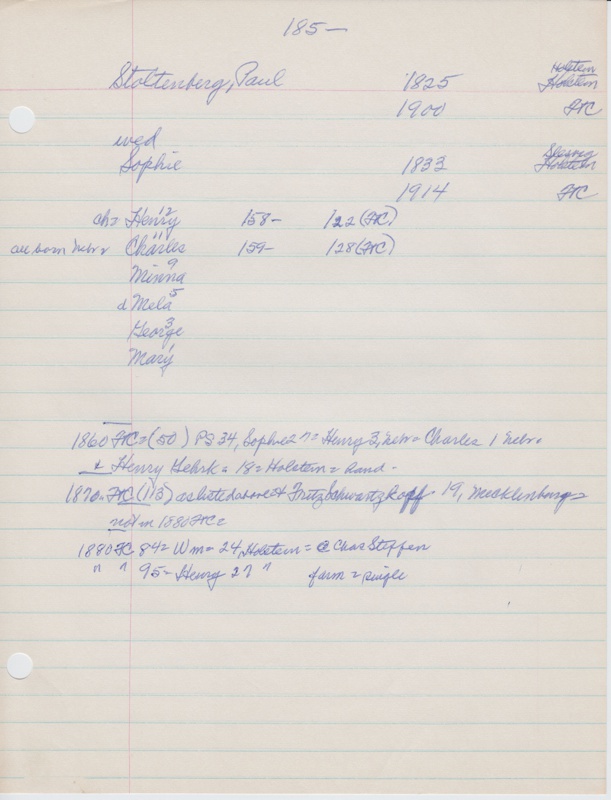 185-
Stoltenberg, Paul 1825 Holstein Holstein
1900 FC
wed
Sophie 1833 Holstein
1914 FC
ch= Henry 12 158- 122 (FC)
all born Nebr= Charles 11 159- 128 (FC)
Minna 9
d Mela 5
George 3
Mary 1
1860 FC = (50) PS 34, Sophie 27 = Henry 3, Nebr = Charles 1 Nebr.
& Henry = 18 = Holstein = hand -
1870. FC (113) as listed above & Fritz Schwartzkopff 19, Mecklenburg=
not in 1880 FC=
1880 FC 84= Wm= 24, Holstein = @ Chas Steffen
" " 95= Henry 27 " farm = single